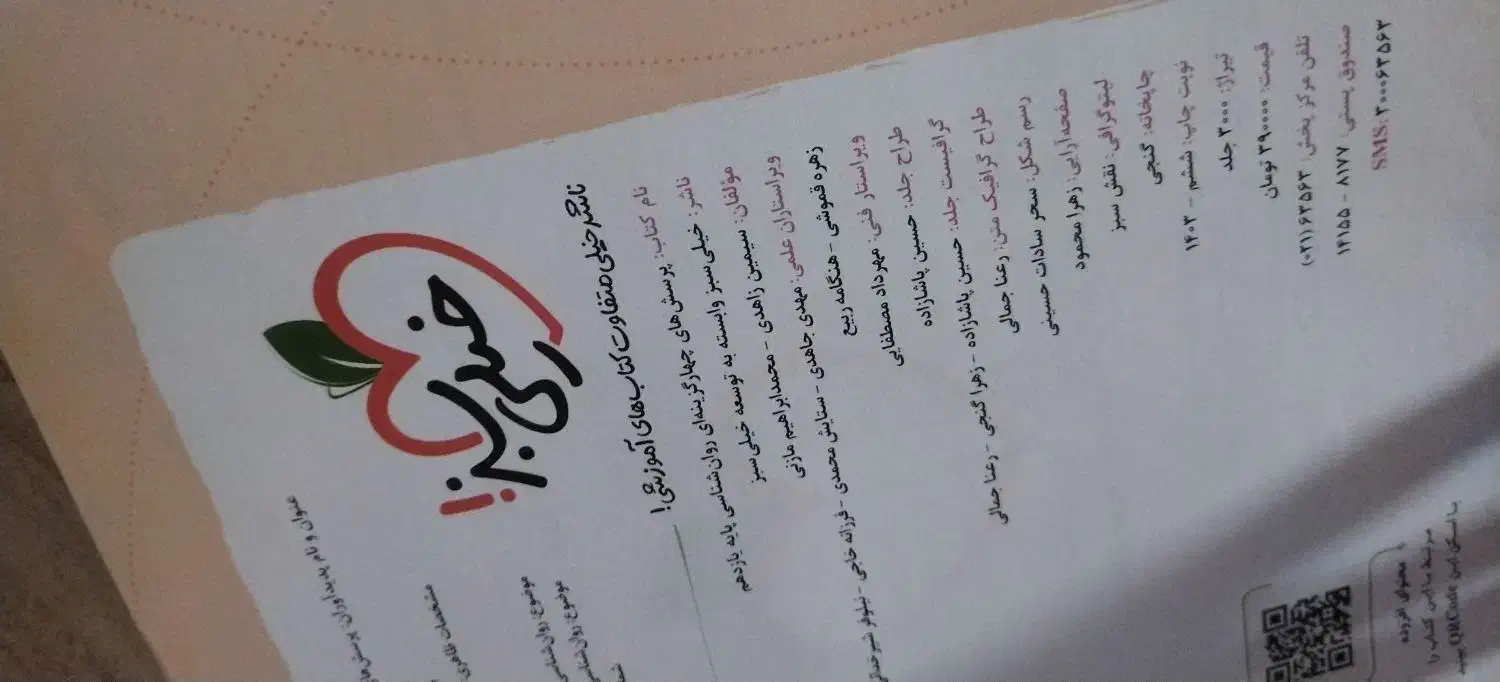 خیلی سبز!
ناشر خیلی متفاوت کتاب‌های آموزشی!
نام کتاب: پرسش‌های چهارگزینه‌ای روان‌شناسی پایه یازدهم
ناشر: خیلی سبز وابسته به توسعه خیلی سبز
مؤلفان: سیمین زاهدی - محمدابراهیم مازنی
ویراستاران علمی: مهدی جاهدی - ستایش محمدی - فرزانه حاجی - نیلوفر
زهره قموشی - هنگامه ربیع
ویراستار فنی: مهرداد مصطفایی
طراح جلد: حسین پاشازاده
گرافیست جلد: حسین پاشازاده - زهرا گنجی - رعنا جمالی
طراح گرافیک متن: رعنا جمالی
رسم شکل: سحر سادات حسینی
صفحه‌آرایی: زهرا محمود
لیتوگرافی: نقش سبز
چاپخانه: گنجی
نوبت چاپ: ششم - ۱۴۰۳
تیراژ: ۳۰۰۰ جلد
قیمت: ۲۹۰۰۰۰ تومان
تلفن مرکز پخش: ۶۳۵۶۳ (۰۲۱)
صندوق پستی: ۸۱۷۷ - ۱۴۱۵۵
SMS: ۳۰۰۰۶۳۵۶۳
عنوان و نام پدیدآوران: پرسش‌های
مشخصات ظاهری
موضوع: روان‌شناسی
موضوع: روان‌شناسی
محتوای افزوده
مرتبط با این کتاب را
با اسکن این QRCode ببینید